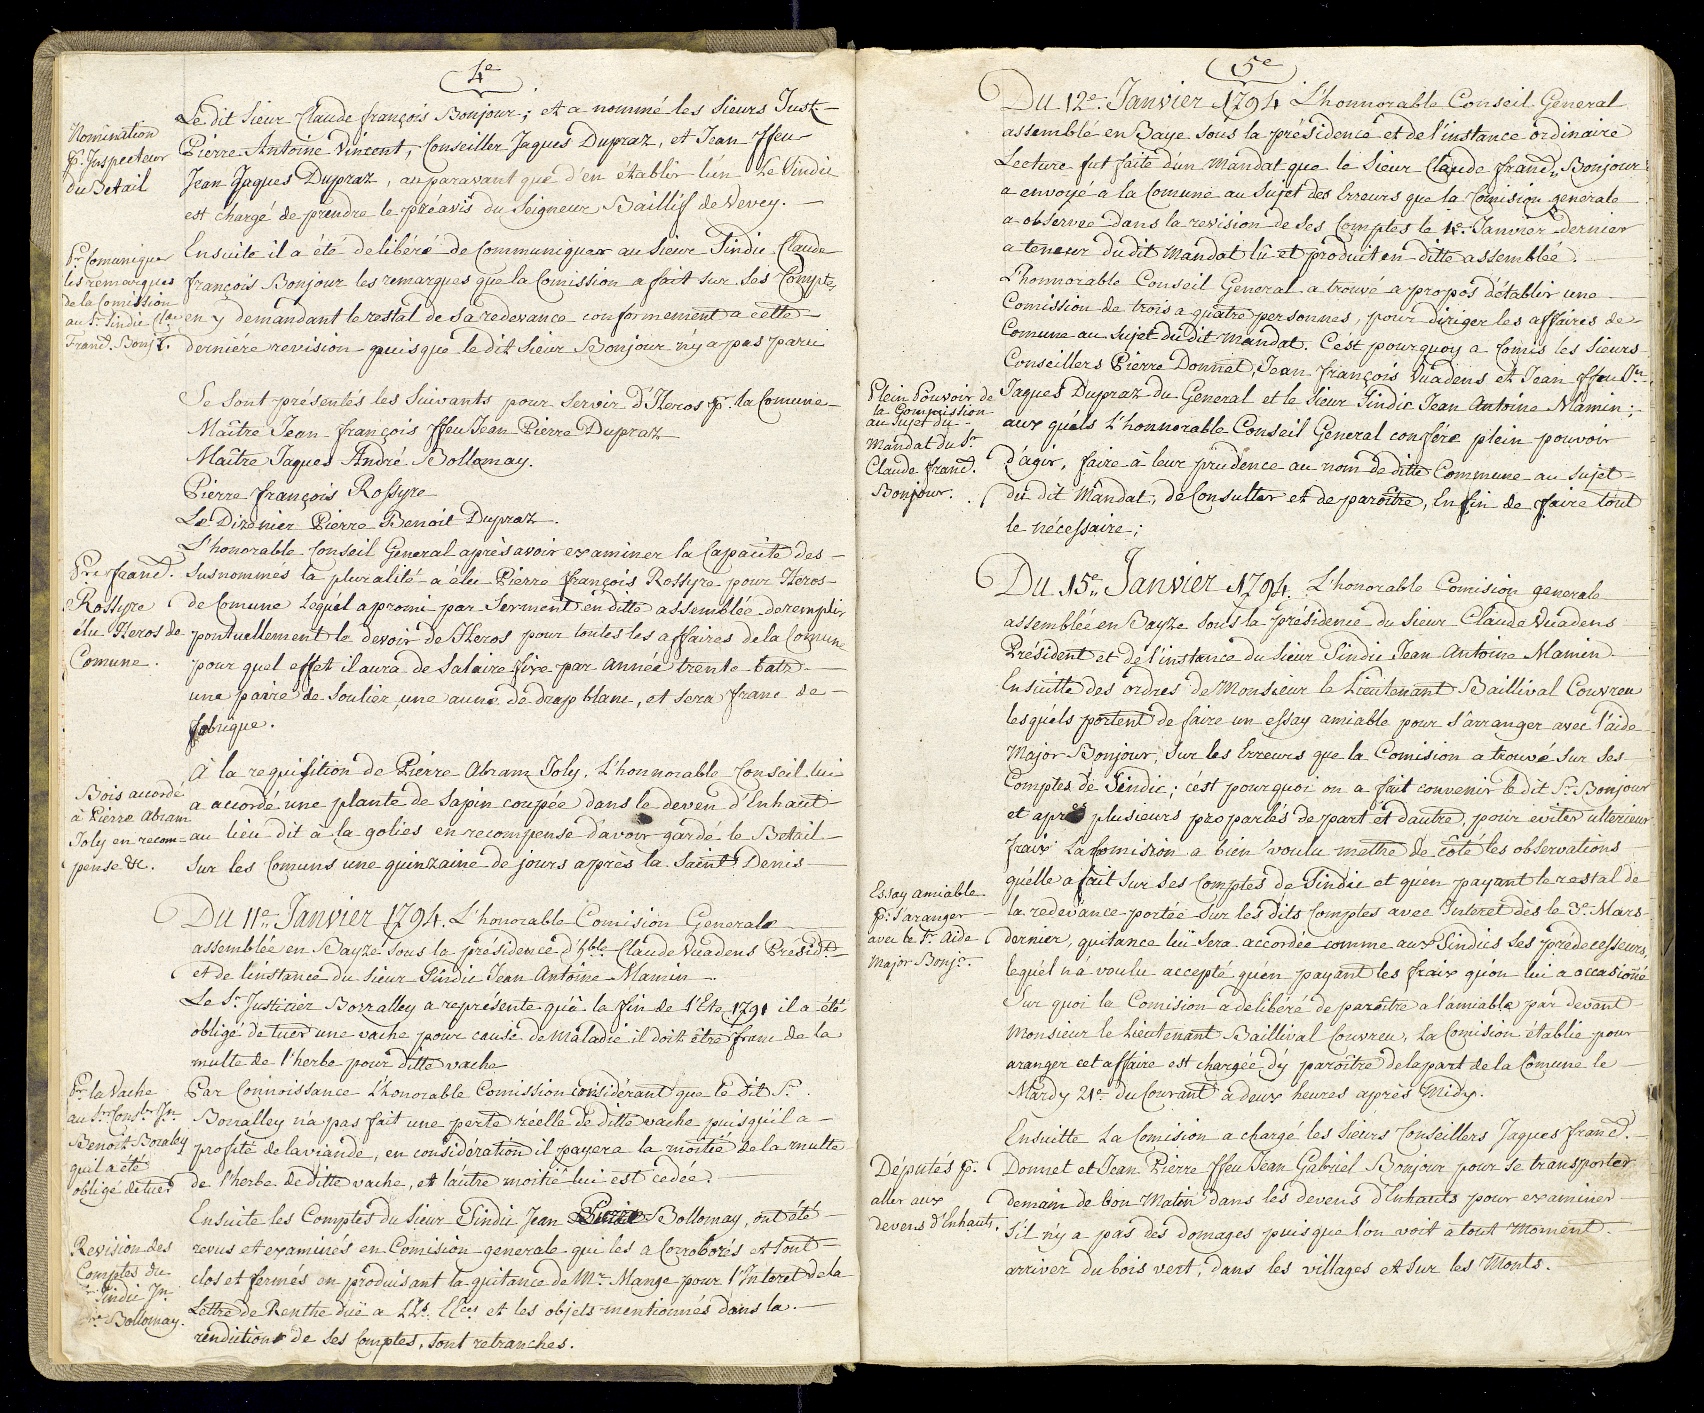 4e
Le dit Sieur Claude françois Bonjour; et a nommé les Sieurs Just.
Nomination
pr. Inspecteur
du Betail
Pierre Antoine Vincent, Conseiller Jaques Dupraz, et Jean ffeu
Jean Jaques Dupraz, auparavant que d'en établir l'un Le Sindic
est chargé de prendre le préavis du Seigneur Baillif de Vevey.
pr. Comuniquer
les remarques
de la Comission
au Sr. Sindic Clae
Francs. Bonjr.
Ensuite il a été deliberé de Communiquer au Sieur Sindic Claude
françois Bonjour les remarques que la Comission a fait sur ses Compte,
en y demandant le restal de sa redevance conformement a cette
derniére revision puisque le dit Sieur Bonjour n'y a pas paru
Se sont présentés les Suivants pour servir d'Heros pr. la Comune
Maître Jean françois ffeu Jean Pierre Dupraz
Maître Jaques André Bollomay.
Pierre françois Rossyre
Le Dizenier Pierre Benoit Dupraz.
L'honorable Conseil General après avoir examiner la Capacité des
Pre. francs.
Rossyre
élu Heros de
Comune.
susnommés la pluralité a élu Pierre françois Rossyre pour Heros
de Comune Lequél a promi par Serment en ditte assemblée de remplir
pontuellement le devoir de Heros pour toutes les affaires de la Comune
pour quel effet il aura de Salaire fixe par année trente batz
une paire de Soulier, une aune de drap blanc, et sera franc de
fabrique.
À la requisition de Pierre Abram Joly. L'honnorable Conseil lui
Bois accordé
à Pierre Abram
Joly en recom-
pense &c.
a accordé une plante de Sapin coupée dans le deven d'Enhaut
au lieu dit à la golies en recompense d'avoir gardé le Betail
sur les Comuns une quinzaine de jours après la Saint Denis
Du 11e. Janvier 1794. L'honorable Comision Generale
assemblée en Bayze sous la présidence d'hble. Claude Vuadens Présidt.
et de l'instance du Sieur Sindic Jean Antoine Mamin.
Le Sr. Justicier Borralley a représenté qu'à la fin de l'Eté 1791 il a été
obligé de tuer une vache pour cause de maladie il doit être franc de la
multe de l'herbe pour ditte vache
pr. la Vache
au Sr. Consler. Jn.
Benoit Boraley
qu'il a été
obligé de tuer
Par Connoissance L'honorable Comission considérant que le dit Sr.
Borralley n'a pas fait une perte réelle de ditte vache puisqu'il a
profité de la viande, en considération il payera la moitié de la multe
de l'herbe de ditte vache, et l'autre moitié lui est cedée.
Revision des
Comptes du
Sr. Sindic Jn.
Bollomay.
Ensuite les Comptes du Sieur Sindic Jean Bollomay, ont été
revus et examinés en Comision generale qui les a Corroborés et sont
clos et fermés en produisant la quitance de Mr. Mange pour l'Interet de la
Lettre de Renthe duë a LLs. EEces et les objets mentionnés dans la
rendition de ses Comptes, sont retranchés.
5e
Du 12e. Janvier 1794 L'honnorable Conseil General
assemblé en Baye sous la présidence et de l'instance ordinaire
Lecture fut faite d'un Mandat que le Sieur Claude francs. Bonjour
a envoyé à la Comune au Sujet des Erreurs que la Comision generale
a observée dans la revision de ses Comptes le 1e. Janvier dernier
a teneur du dit Mandat lû et produit en ditte assemblé.
L'honnorable Conseil General a trouvé a propos d'établir une
Comission de trois a quatre personnes, pour diriger les affaires de
Comune au Sujet du dit Mandat. C'est pourquoy a Comis les Sieurs
Conseillers Pierre Donnet, Jean françois Vuadens et Jean ffeu Jn.
Plein Pouvoir de
la Compission
au Sujet du
Mandat du Sr.
Claude francs.
Bonjour.
Jaques Dupraz du General et le Sieur Sindic Jean Antoine Mamin;
aux quéls L'honnorable Conseil General confére plein pouvoir
d'agir, faire à leur prudence au nom de ditte Commune au Sujet
du dit Mandat, de Consulter et de paroître, Enfin de faire tout
le nécessaire;
Du 15e. Janvier 1794. L'honorable Comision generale
assemblée en Bayze sous la présidence du Sieur Claude Vuadens
Président et de l'instance du Sieur Sindic Jean Antoine Mamin
Ensuitte des ordres de Monsieur le Lieutenant Baillival Couvreu
lesquéls portent de faire un essay amiable pour s'arranger avec l'aide
Major Bonjour, sur les Erreurs que la Comision a trouvé sur ses
Comptes de Sindic; c'est pourquoi on a fait convenir le dit Sr. Bonjour
et après plusieurs proparlés de part et d'autre, pour eviter ulterieur
fraix La Comision a bien voulu mettre de côté les observations
qu'élle a fait sur ses Comptes de Sindic et qu'en payant le restal de
Essay amiable
pr. s'aranger
avec le Sr. Aide
Major Bonjr.
la redevance portée sur les dits Comptes avec Interet dès le 3e. Mars
dernier, quitance lui sera accordée comme aux Sindics ses prédecesseurs,
lequél n'a voulu accepté qu'en payant les fraix qu'on lui a occasioné
Sur quoi la Comision a deliberé de paroître a l'amiable par devant
Monsieur le Lieutenant Baillival Couvreu, La Comision établie pour
aranger cet affaire est chargée d'y paroître de la part de la Comune le
Mardy 21e. du Courant à deux heures après Midy.
Ensuitte La Comision a chargé les Sieurs Conseillers Jaques francs.
Députés pr.
aller aux
devens d'Enhauts.
Donnet et Jean Pierre ffeu Jean Gabriel Bonjour pour se transporter
demain de bon Matin dans les devens d'Enhauts pour examiner
s'il n'y a pas des domages puisque l'on voit à tout Moment
arriver du bois vert, dans les villages et sur les Monts.